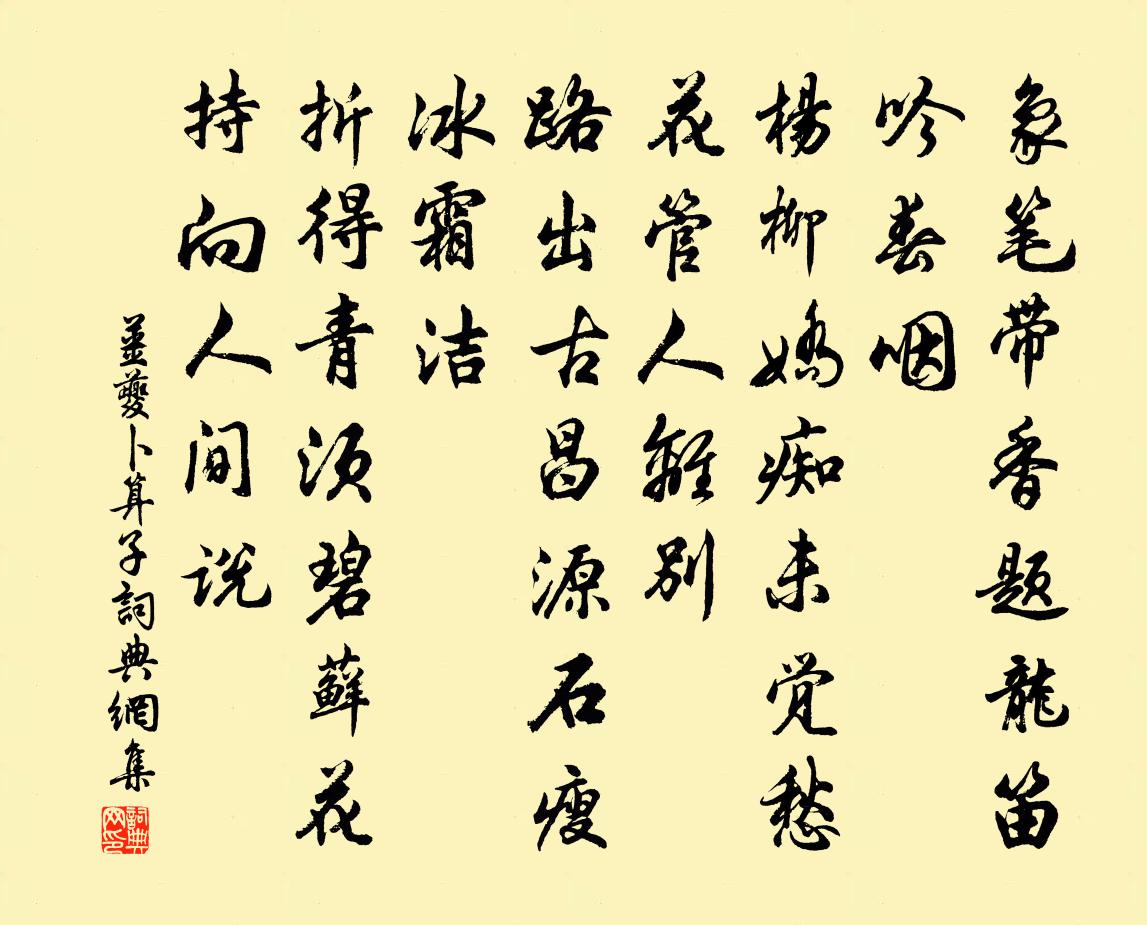 象笔带香题龍笛
吟春咽
楊柳嬌痴未觉愁
花管人離别
路出古昌源石瘦
冰霜洁
折得青须碧蘚花
持向人间说
薑夔卜算子詞典網集
詞典网印